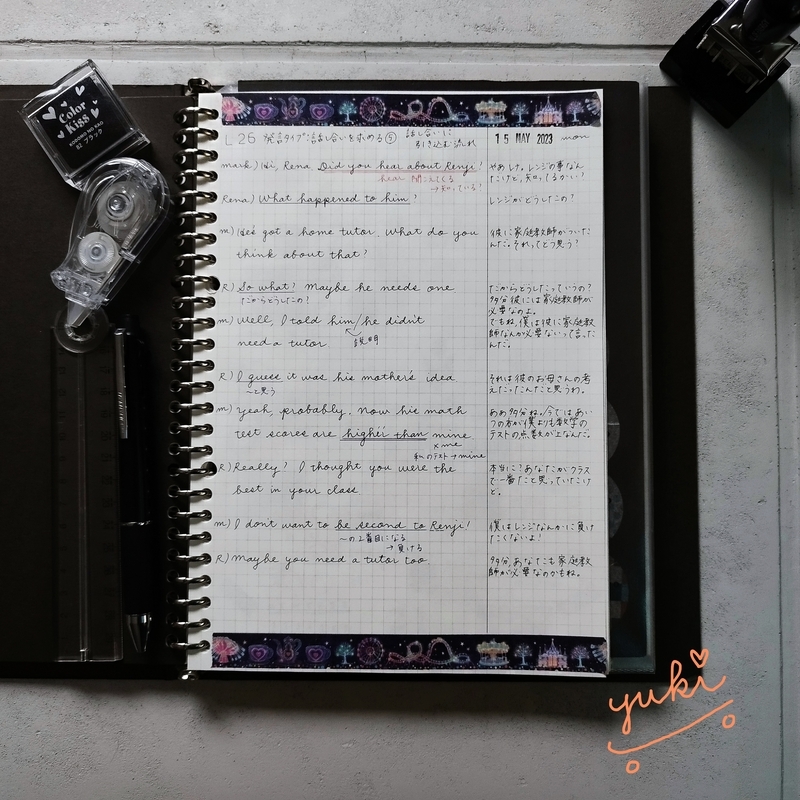 Color
Kiss
KODOMO NO KAO
ブラック
L 26 発言タイプ: 話し合いを求める⑤ 話し合いに
引き込む流れ
15 MAY 2023 mon
mark) Hi, Rena. Did you hear about Renji?
hear 聞こえてくる
→知っている!
やあレナ。レンジの事なん
だけど、知ってるかい?
Rena) What happened to him?
レンジがどうしたの?
m) He's got a home tutor. What do you
think about that?
彼に家庭教師がついた
んだ。それってどう思う?
R) So what? Maybe he needs one
だからどうしたの?
だからどうしたっていうの?
多分彼には家庭教師が
必要なのよ。
m) Well, I told him/he didn't
need a tutor
説明
でもね、僕は彼に家庭教
師なんか必要ないって言った
んだ。
R) I guess it was his mother's idea
〜と思う
それは彼のお母さんの考
えだったんだと思うわ。
m) Yeah, probably. Now his math
test scores are higher than mine
×me
私のテスト→mine
ああ多分ね。今ではあい
つの方が僕よりも数学の
テストの点数が上なんだ。
R) Really? I thought you were the
best in your class
本当に?あなたがクラス
で一番だと思っていたけ
ど。
m) I don't want to be second to Renji!
〜の2番目になる
→負ける
僕はレンジなんかに負け
たくないよ!
R) Maybe you need a tutor too
多分、あなたも家庭教
師が必要なのかもね。
yuki